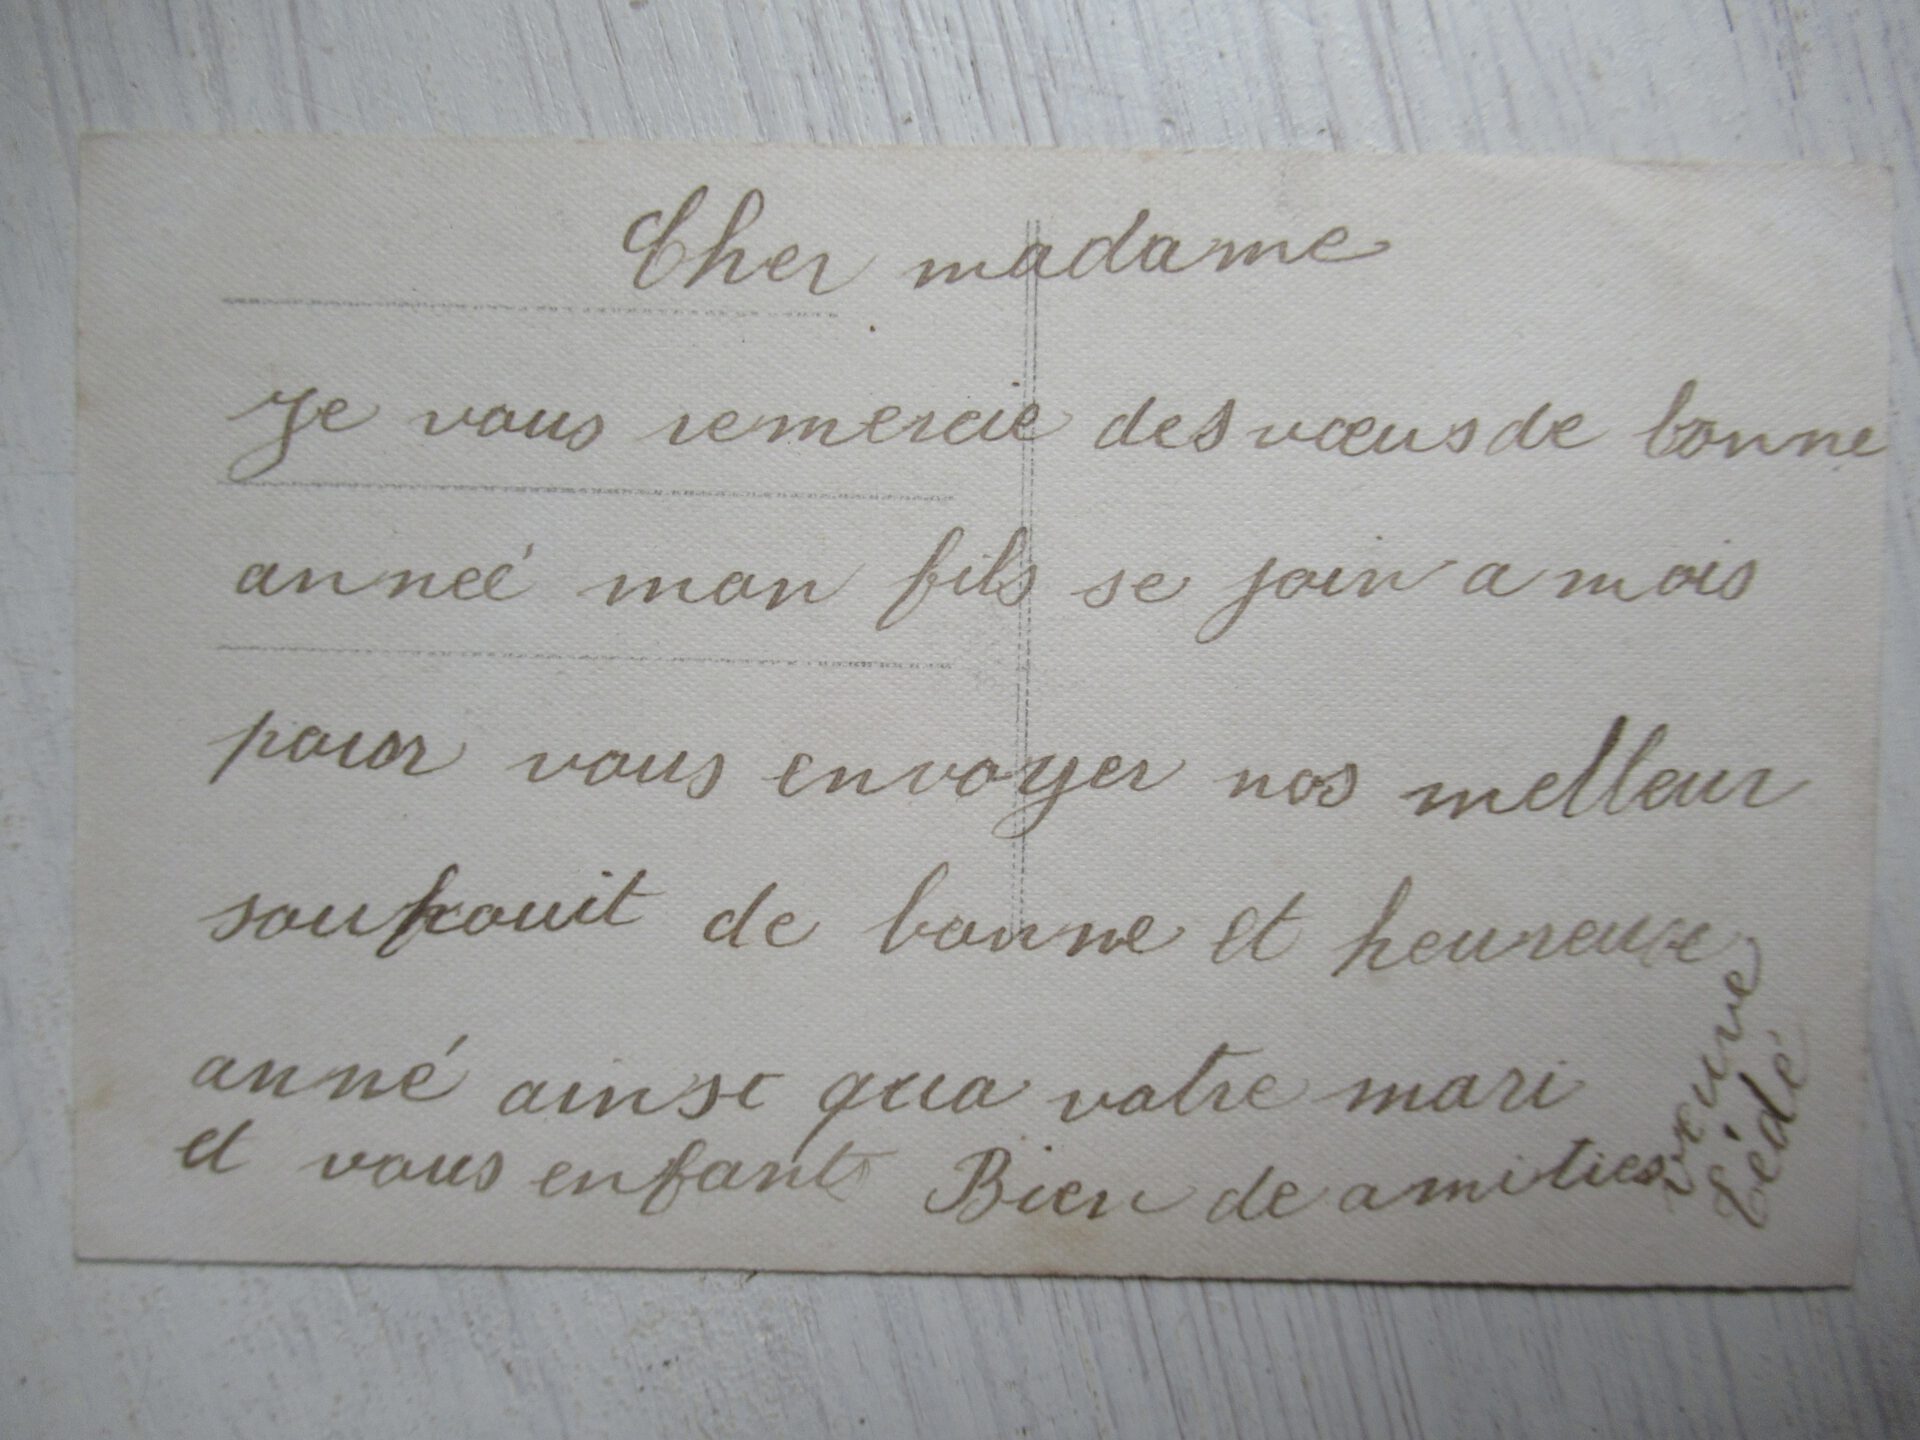 Cher madame
Je vous remercie des vœus de bonne
anneé mon fils se join a mois
pour vous envoyer nos melleur
souhouit de bonne et heureuse
anné ainsi qua votre mari
et vous enfants Bien de amities
veuve
Cédé